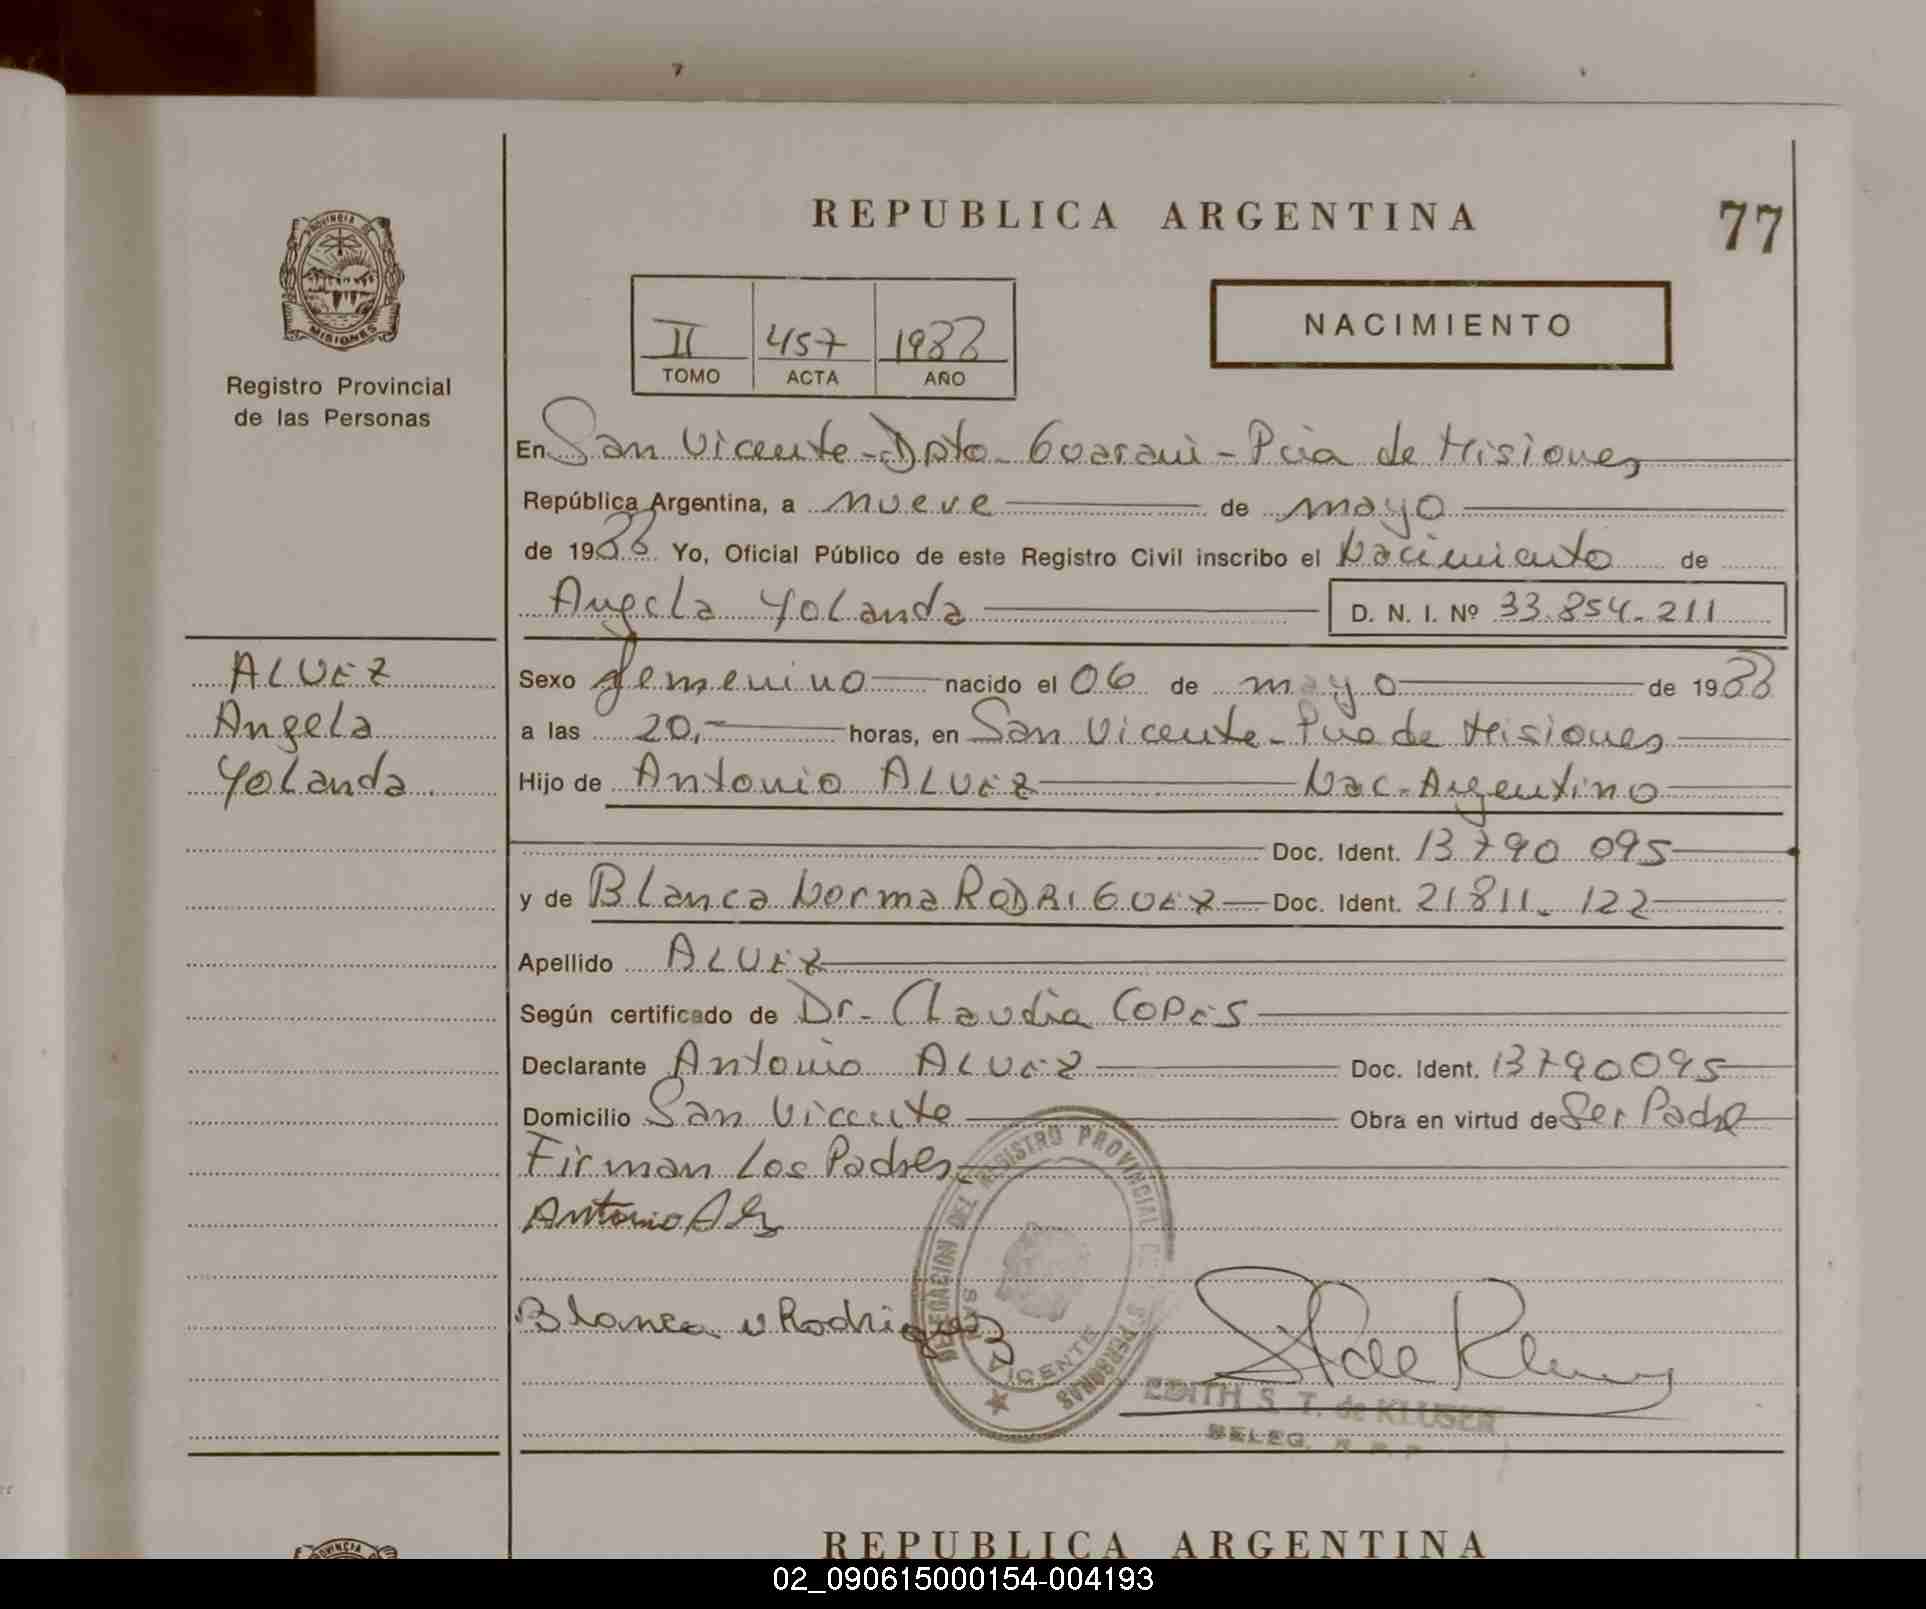 REPUBLICA ARGENTINA
77
PROVINCIA DE
MISIONES
Registro Provincial
de las Personas
II 457 1988
TOMO ACTA AÑO
NACIMIENTO
En San Vicente - Dpto - Guarani - Pcia de Misiones
República Argentina, a nueve de mayo
de 1988 Yo, Oficial Público de este Registro Civil inscribo el Nacimiento de
Angela Yolanda D. N. I. Nº 33.854.211
ALVEZ
Angela
Yolanda
Sexo femenino nacido el 06 de mayo de 1988
a las 20,- horas, en San Vicente - Pcia de Misiones
Hijo de Antonio ALVEZ Nac - Argentino
Doc. Ident. 13790 095
y de Blanca Norma RODRIGUEZ Doc. Ident. 21811. 122
Apellido ALVEZ
Según certificado de Dr - Claudia COPES
Declarante Antonio ALVEZ Doc. Ident. 13790095
Domicilio San Vicente Obra en virtud de Ser Padre
Firman Los Padres
Antonio
Blanca N Rodriguez
DELEGACION DEL REGISTRO PROVINCIAL DE PERSONAS
SAN VICENTE
EDITH S. T. de KLUSER
DELEG. R. P. P.
REPUBLICA ARGENTINA
02_090615000154-004193